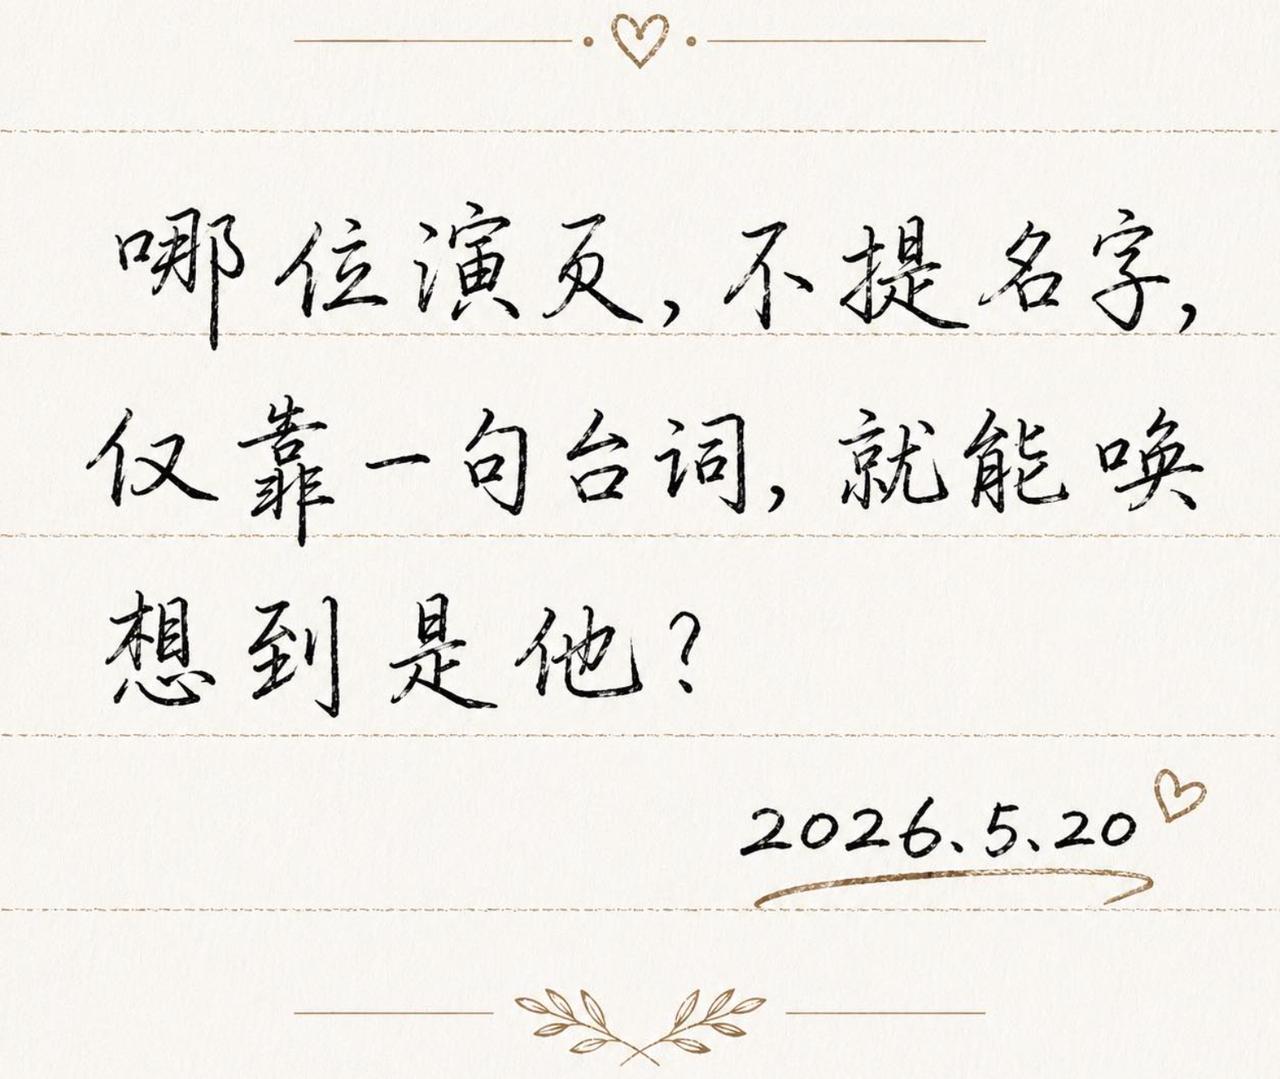 哪位演页,不提名字,
仅靠一句台词,就能唤
想到是他?
2026.5.20